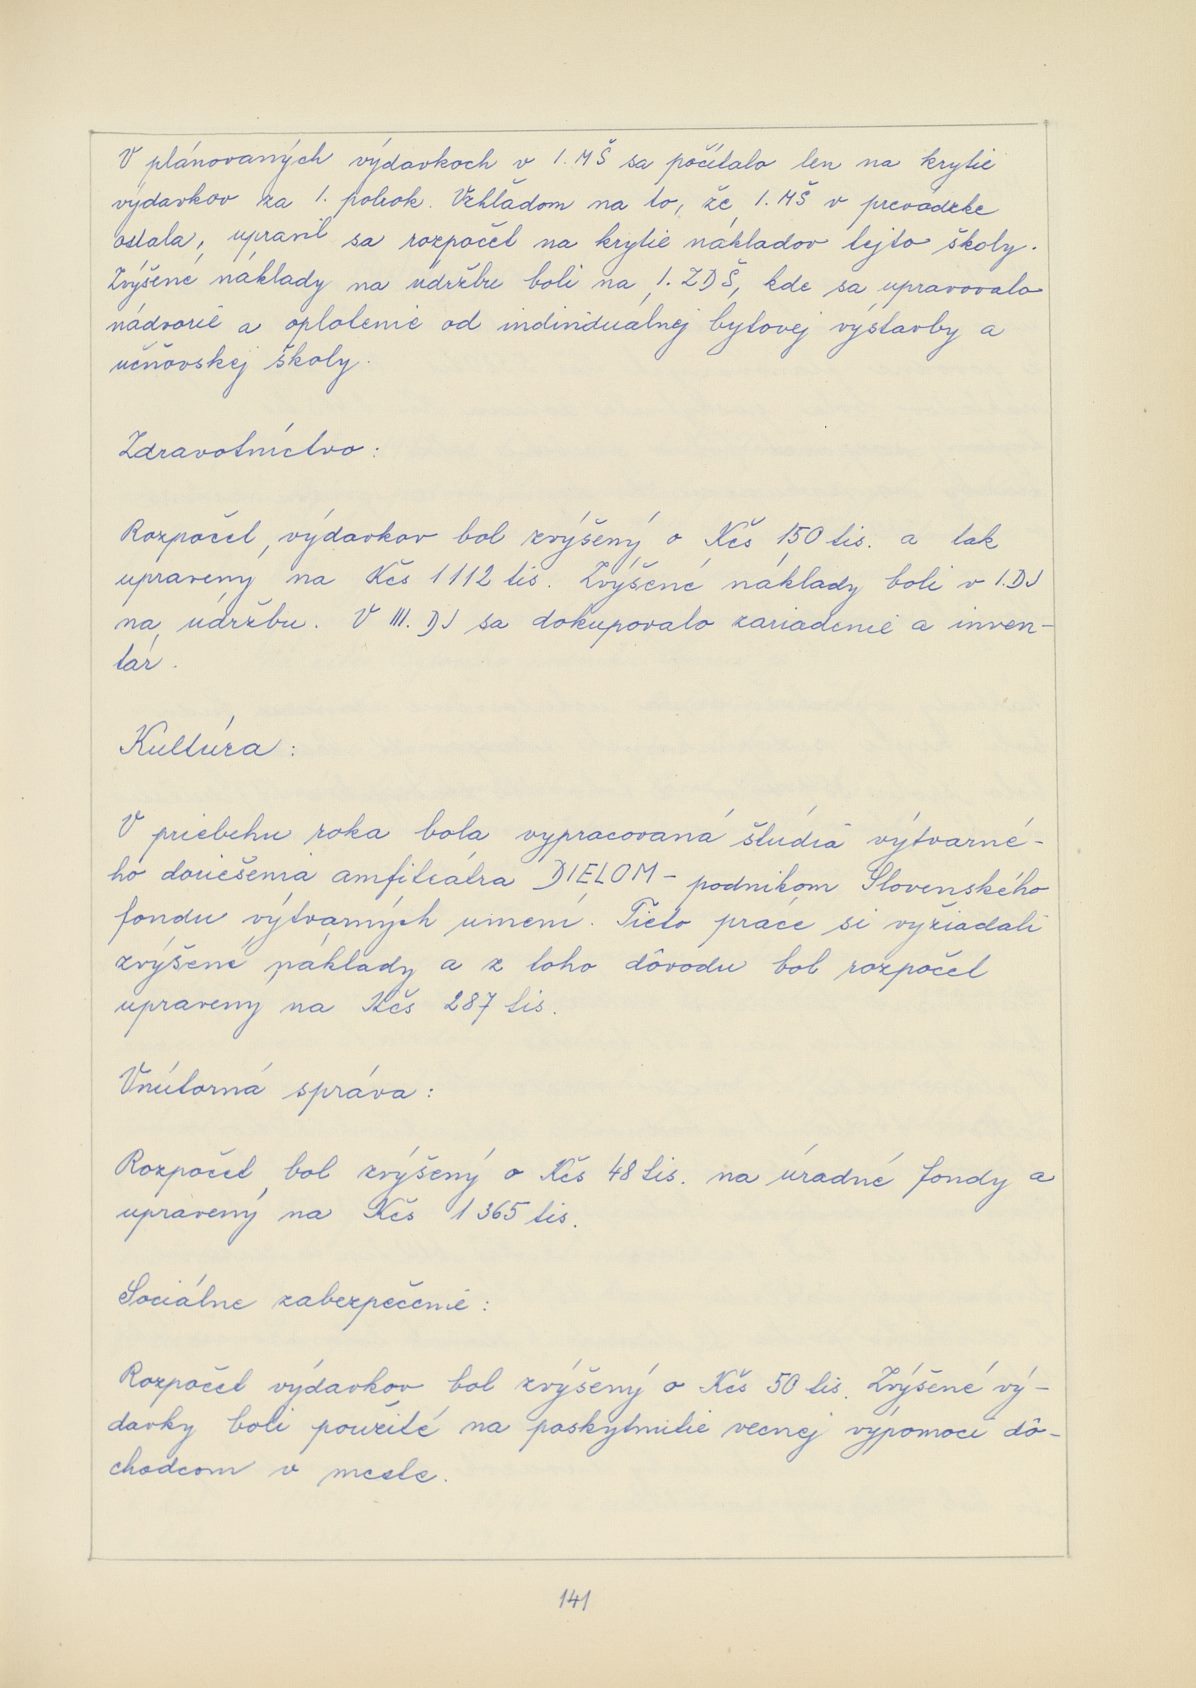 V plánovaných výdavkoch v 1. MŠ sa počítalo len na krytie
výdavkov za 1. polrok. Vzhľadom na to, že 1. MŠ v prevádzke
ostala, upravil sa rozpočet na krytie nákladov tejto školy.
Zvýšené náklady na údržbu boli na 1. ZDŠ, kde sa upravovalo
nádvorie a oplotenie od individuálnej bytovej výstavby a
učňovskej školy.
Zdravotníctvo:
Rozpočet výdavkov bol zvýšený o Kčs 150 tis. a tak
upravený na Kčs 1112 tis. Zvýšené náklady boli v I. DJ
na údržbu. V III. DJ sa dokupovalo zariadenie a inven-
tár.
Kultúra:
V priebehu roka bola vypracovaná štúdia výtvarné-
ho doriešenia amfiteátra DIELOM - podnikom Slovenského
fondu výtvarných umení. Tieto práce si vyžiadali
zvýšené náklady a z toho dôvodu bol rozpočet
upravený na Kčs 287 tis.
Vnútorná správa:
Rozpočet bol zvýšený o Kčs 48 tis. na úradné fondy a
upravený na Kčs 1 365 tis.
Sociálne zabezpečenie:
Rozpočet výdavkov bol zvýšený o Kčs 50 tis. Zvýšené vý-
davky boli použité na poskytnutie vecnej výpomoci dô-
chodcom v meste.
141